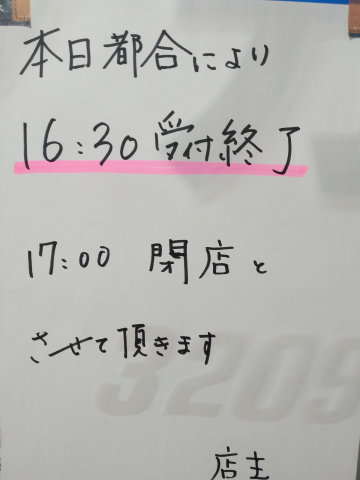 本日都合により
16:30受付終了
17:00 閉店と
させて頂きます
3209
店主